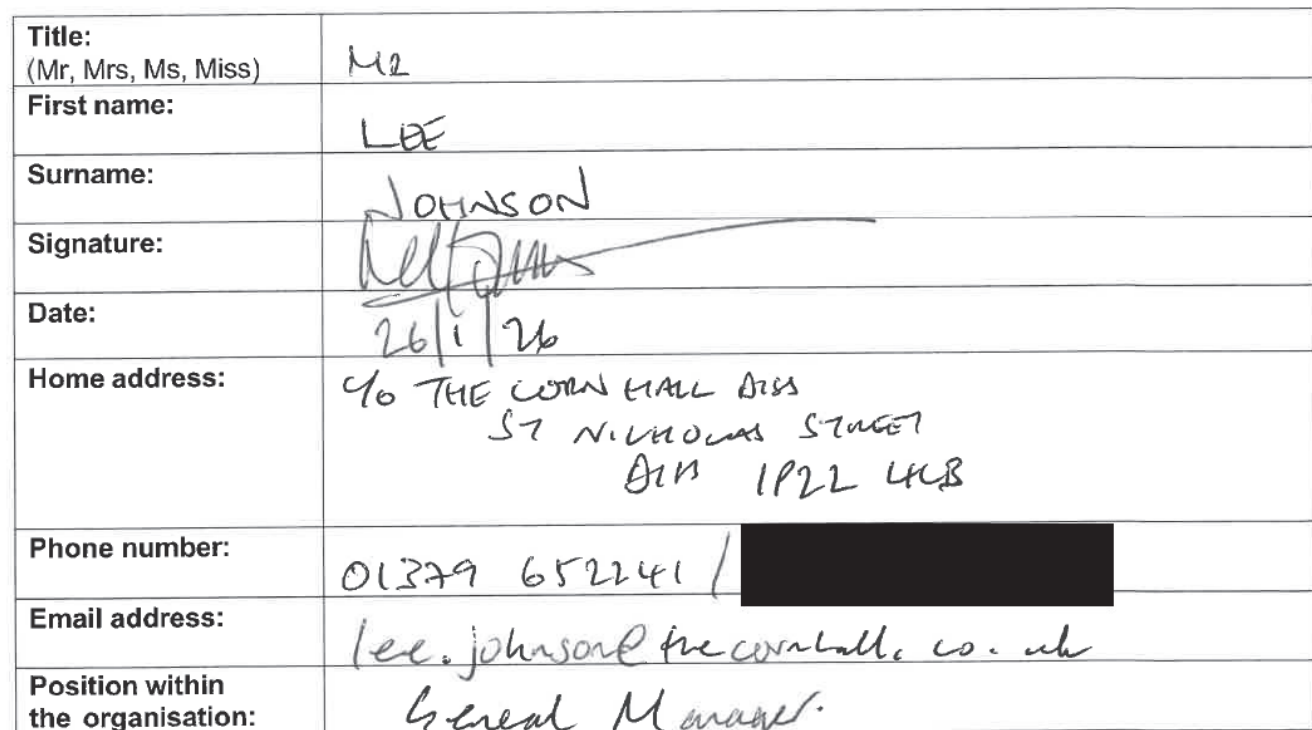 Title:
(Mr, Mrs, Ms, Miss)
MR
First name:
LEE
Surname:
JOHNSON
Signature:
Date:
26/1/26
Home address:
C/o THE CORN HALL DISS
ST NICHOLAS STREET
DISS IP22 4LB
Phone number:
01379 652241 /
Email address:
lee.johnson@thecornhall.co.uk
Position within
the organisation:
General Manager.